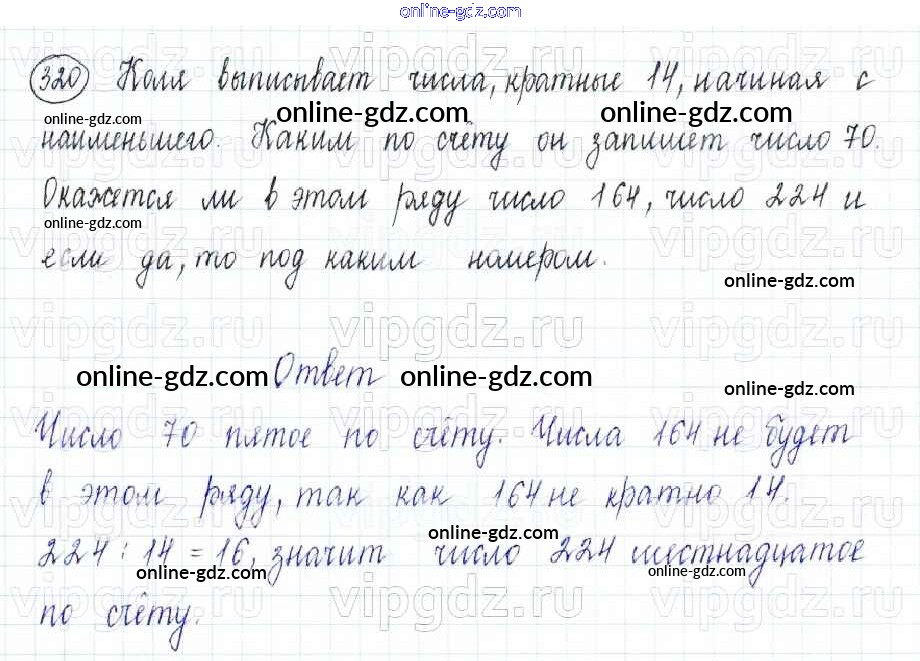 online-gdz.com
320 Коля выписывает числа, кратные 14, начиная с
online-gdz.com online-gdz.com
online-gdz.com
наименьшего. Каким по счёту он запишет число 70.
Окажется ли в этом ряду число 164, число 224 и
online-gdz.com
если да, то под каким номером.
online-gdz.com
vipgdz.ru vipgdz.ru vipgdz.ru
Ответ
online-gdz.com online-gdz.com online-gdz.com
Число 70 пятое по счёту. Числа 164 не будет
в этом ряду, так как 164 не кратно 14.
online-gdz.com
224 : 14 = 16, значит число 224 шестнадцатое
online-gdz.com online-gdz.com
по счёту.
vipgdz.ru vipgdz.ru vipgdz.ru